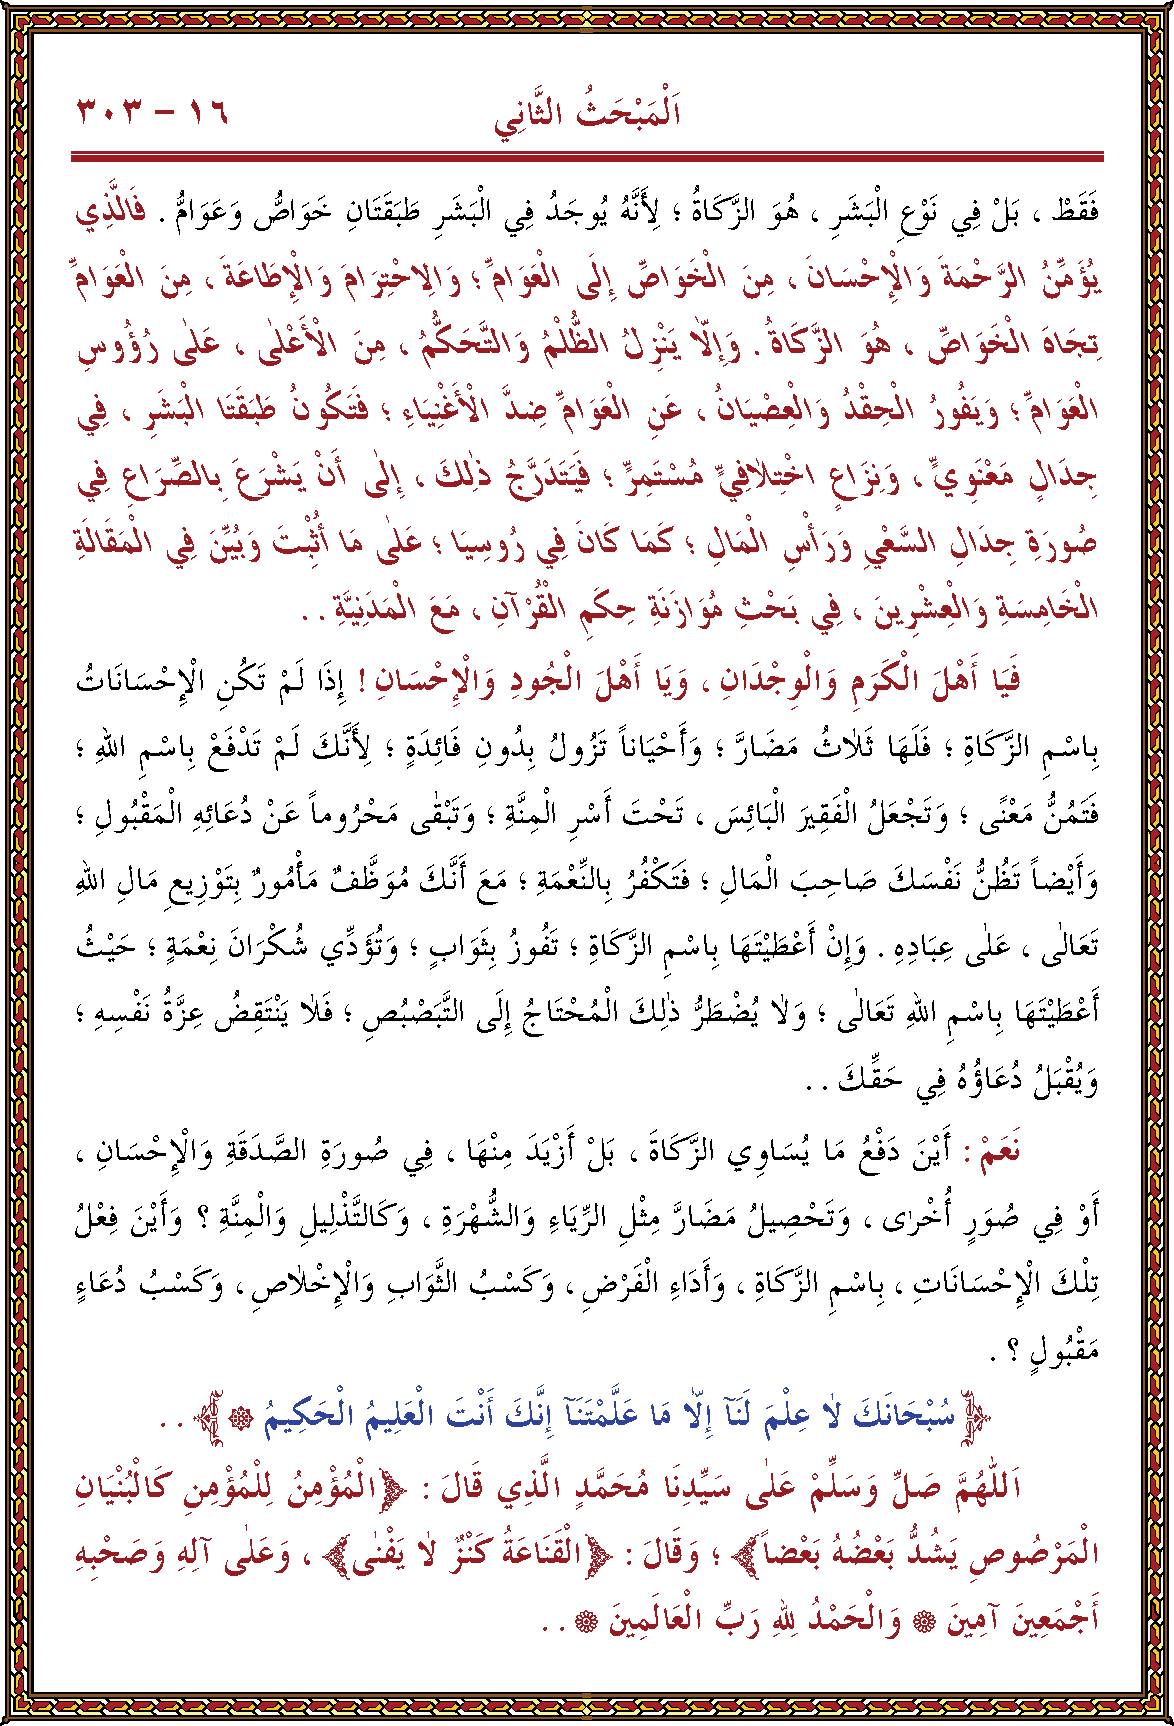 اَلْمَبْحَثُ الثَّانِي ١٦ - ٣٠٣
فَقَطْ ، بَلْ فِي نَوْعِ الْبَشَرِ ، هُوَ الزَّكَاةُ ؛ لِأَنَّهُ يُوجَدُ فِي الْبَشَرِ طَبَقَتَانِ خَوَاصٌّ وَعَوَامٌّ . فَالَّذِي
يُؤَمِّنُ الرَّحْمَةَ وَالْإِحْسَانَ ، مِنَ الْخَوَاصِّ إِلَى الْعَوَامِّ ؛ وَالِاحْتِرَامَ وَالْإِطَاعَةَ ، مِنَ الْعَوَامِّ
تِجَاهَ الْخَوَاصِّ ، هُوَ الزَّكَاةُ . وَإِلاَّ يَنْزِلُ الظُّلْمُ وَالتَّحَكُّمُ ، مِنَ الْأَعْلٰى ، عَلٰى رُؤُوسِ
الْعَوَامِّ ؛ وَيَفُورُ الْحِقْدُ وَالْعِصْيَانُ ، عَنِ الْعَوَامِّ ضِدَّ الْأَغْنِيَاءِ ؛ فَتَكُونُ طَبَقَتَا الْبَشَرِ ، فِي
جِدَالٍ مَعْنَوِيٍّ ، وَنِزَاعٍ اخْتِلاٰفِيٍّ مُسْتَمِرٍّ ؛ فَيَتَدَرَّجُ ذٰلِكَ ، إِلٰى أَنْ يَشْرَعَ بِالصِّرَاعِ فِي
صُورَةِ جِدَالِ السَّعْيِ وَرَأْسِ الْمَالِ ؛ كَمَا كَانَ فِي رُوسِيَا ؛ عَلٰى مَا أُثْبِتَ وَبُيِّنَ فِي الْمَقَالَةِ
الْخَامِسَةِ وَالْعِشْرِينَ ، فِي بَحْثِ مُوَازَنَةِ حِكَمِ الْقُرْآنِ ، مَعَ الْمَدَنِيَّةِ . .
فَيَا أَهْلَ الْكَرَمِ وَالْوِجْدَانِ ، وَيَا أَهْلَ الْجُودِ وَالْإِحْسَانِ ! إِذَا لَمْ تَكُنِ الْإِحْسَانَاتُ
بِاسْمِ الزَّكَاةِ ؛ فَلَهَا ثَلاٰثُ مَضَارَّ ؛ وَأَحْيَاناً تَزُولُ بِدُونِ فَائِدَةٍ ؛ لِأَنَّكَ لَمْ تَدْفَعْ بِاسْمِ اللهِ ؛
فَتَمُنُّ مَعْنًى ؛ وَتَجْعَلُ الْفَقِيرَ الْبَائِسَ ، تَحْتَ أَسْرِ الْمِنَّةِ ؛ وَتَبْقٰى مَحْرُوماً عَنْ دُعَائِهِ الْمَقْبُولِ ؛
وَأَيْضاً تَظُنُّ نَفْسَكَ صَاحِبَ الْمَالِ ؛ فَتَكْفُرُ بِالنِّعْمَةِ ؛ مَعَ أَنَّكَ مُوَظَّفٌ مَأْمُورٌ بِتَوْزِيعِ مَالِ اللهِ
تَعَالٰى ، عَلٰى عِبَادِهِ . وَإِنْ أَعْطَيْتَهَا بِاسْمِ الزَّكَاةِ ؛ تَفُوزُ بِثَوَابٍ ؛ وَتُؤَدِّي شُكْرَانَ نِعْمَةٍ ؛ حَيْثُ
أَعْطَيْتَهَا بِاسْمِ اللهِ تَعَالٰى ؛ وَلاٰ يُضْطَرُّ ذٰلِكَ الْمُحْتَاجُ إِلَى التَّبَصْبُصِ ؛ فَلاٰ يَنْتَقِضُ عِزَّةُ نَفْسِهِ ؛
وَيُقْبَلُ دُعَاؤُهُ فِي حَقِّكَ . .
نَعَمْ : أَيْنَ دَفْعُ مَا يُسَاوِي الزَّكَاةَ ، بَلْ أَزْيَدَ مِنْهَا ، فِي صُورَةِ الصَّدَقَةِ وَالْإِحْسَانِ ،
أَوْ فِي صُوَرٍ أُخْرٰى ، وَتَحْصِيلُ مَضَارَّ مِثْلِ الرِّيَاءِ وَالشُّهْرَةِ ، وَكَالتَّذْلِيلِ وَالْمِنَّةِ ؟ وَأَيْنَ فِعْلُ
تِلْكَ الْإِحْسَانَاتِ ، بِاسْمِ الزَّكَاةِ ، وَأَدَاءِ الْفَرْضِ ، وَكَسْبُ الثَّوَابِ وَالْإِخْلاٰصِ ، وَكَسْبُ دُعَاءٍ
مَقْبُولٍ ؟ .
﴿سُبْحَانَكَ لاٰ عِلْمَ لَنَآ إِلاَّ مَا عَلَّمْتَنَآ إِنَّكَ أَنْتَ الْعَلِيمُ الْحَكِيمُ ۞﴾ . .
اَللّٰهُمَّ صَلِّ وَسَلِّمْ عَلٰى سَيِّدِنَا مُحَمَّدٍ الَّذِي قَالَ : ﴿الْمُؤْمِنُ لِلْمُؤْمِنِ كَالْبُنْيَانِ
الْمَرْصُوصِ يَشُدُّ بَعْضُهُ بَعْضاً﴾ ؛ وَقَالَ : ﴿الْقَنَاعَةُ كَنْزٌ لاٰ يَفْنٰى﴾ ، وَعَلٰى آلِهِ وَصَحْبِهِ
أَجْمَعِينَ آمِينَ ۞ وَالْحَمْدُ لِلّٰهِ رَبِّ الْعَالَمِينَ ۞ . .